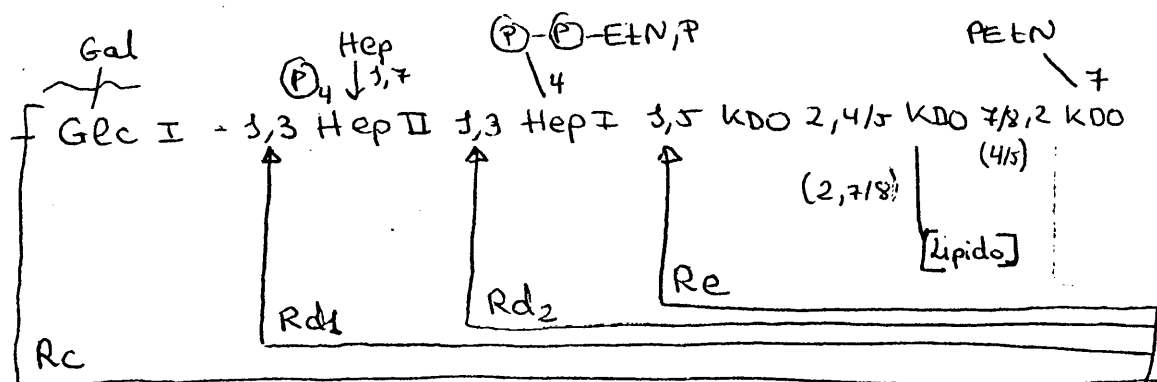 Gal
Hep
Ⓟ-Ⓟ-EtN,P
PEtN
Ⓟ4 ↓1,7
4
7
Glc I - 1,3 Hep II 1,3 Hep I 1,5 KDO 2,4/5 KDO 7/8,2 KDO
(4/5)
(2,7/8)
[Lipido]
Re
Rd2
Rd1
Rc